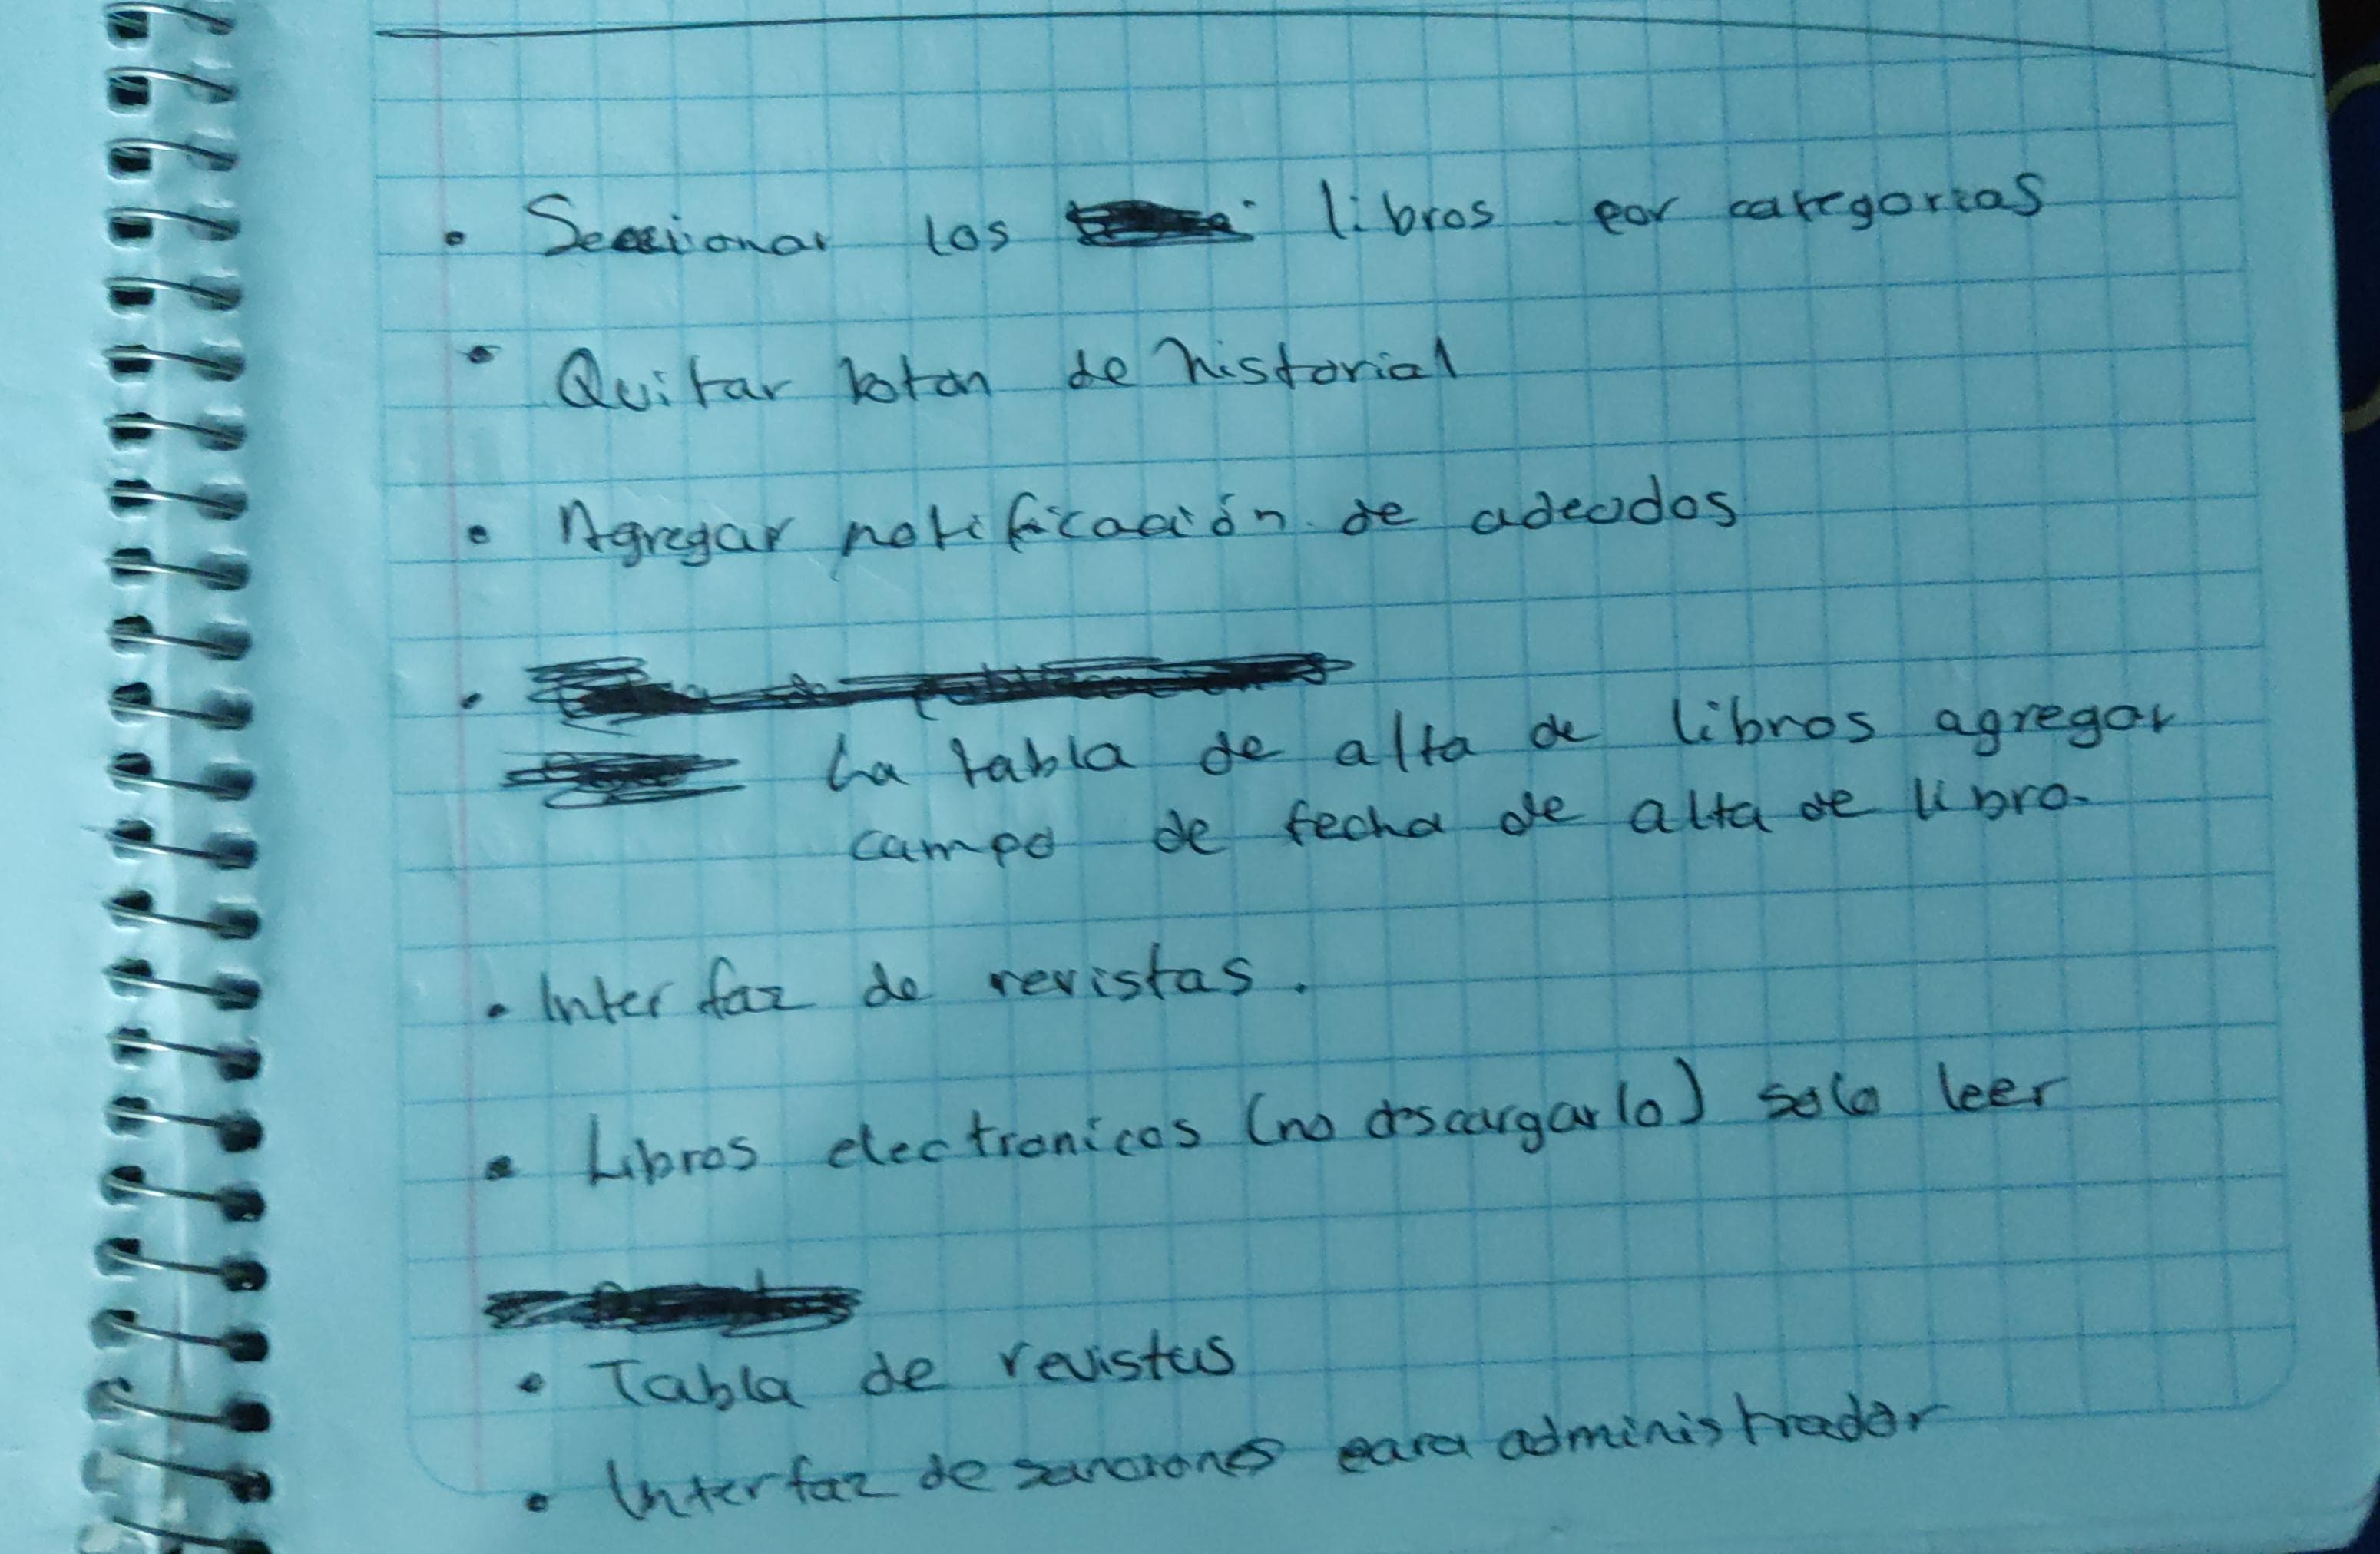 • Seccionar los libros por categorias
• Quitar boton de historial
• Agregar notificación de adeudos
•
La tabla de alta de libros agregar
campo de fecha de alta de libro.
• Interfaz de revistas.
• Libros electronicos (no descargarlo) solo leer
• Tabla de revistas
• Interfaz de sanciones para administrador